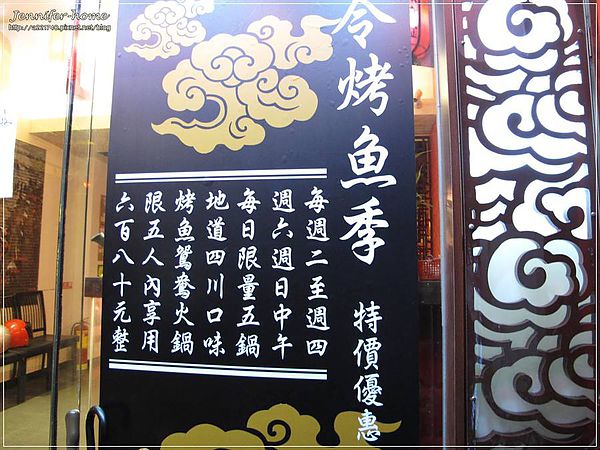 Jennifer-home
令烤魚季
特價優惠
每週二至週四
週六週日中午
每日限量五鍋
地道四川口味
烤魚鴛鴦火鍋
限五人內享用
六百八十元整